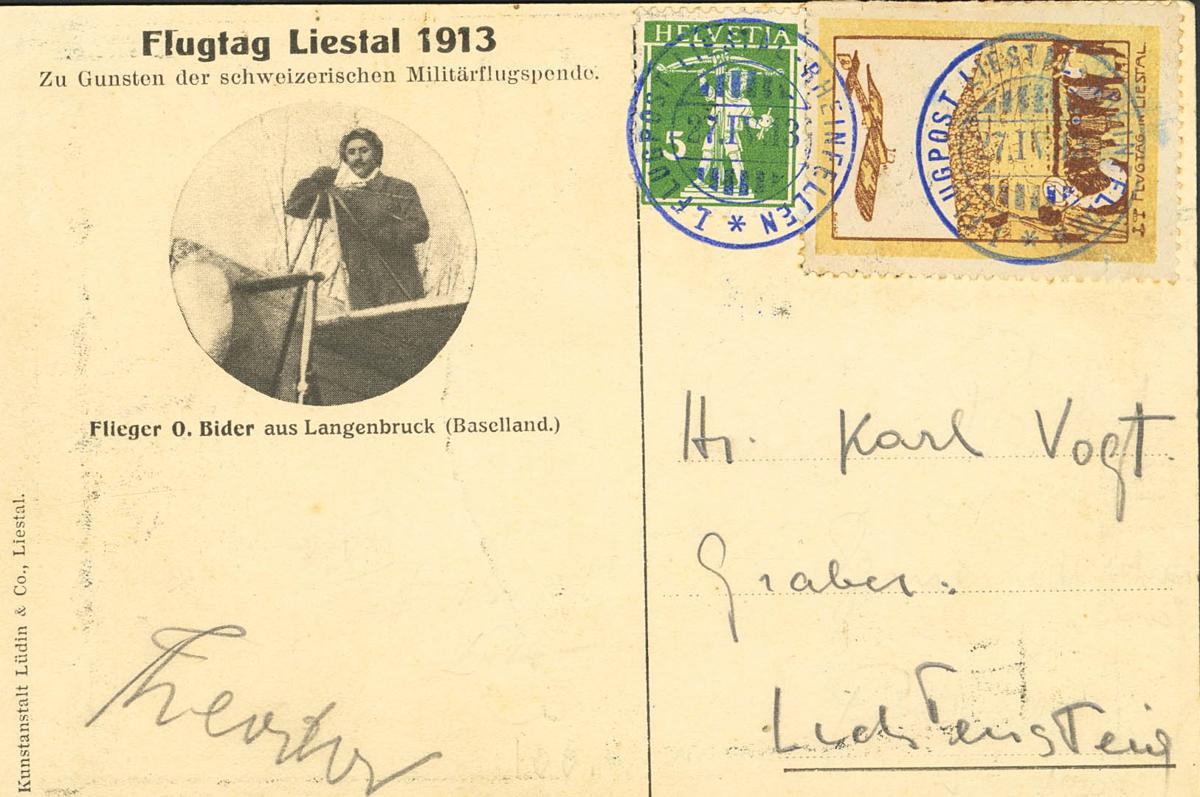 Flugtag Liestal 1913
Zu Gunsten der schweizerischen Militärflugspende.
Flieger O. Bider aus Langenbruck (Baselland.)
Kunstanstalt Lüdin & Co., Liestal.
HELVETIA
5
1. FLUGPOST LIESTAL-RHEINFELDEN *
27.IV.13
FLUGPOST LIESTAL
27.IV
FLUGTAG IN LIESTAL
Hr. Karl Vogt.
Graben.